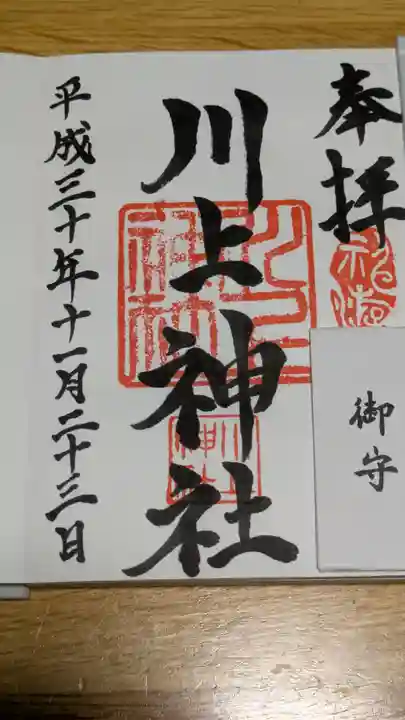 奉拝
川上神社
平成三十年十一月二十三日
御守
川上神社